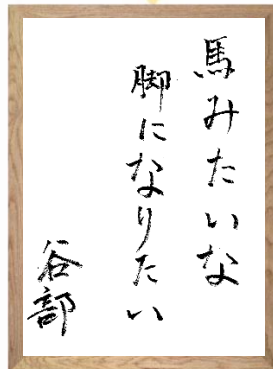 馬みたいな
脚になりたい
谷部